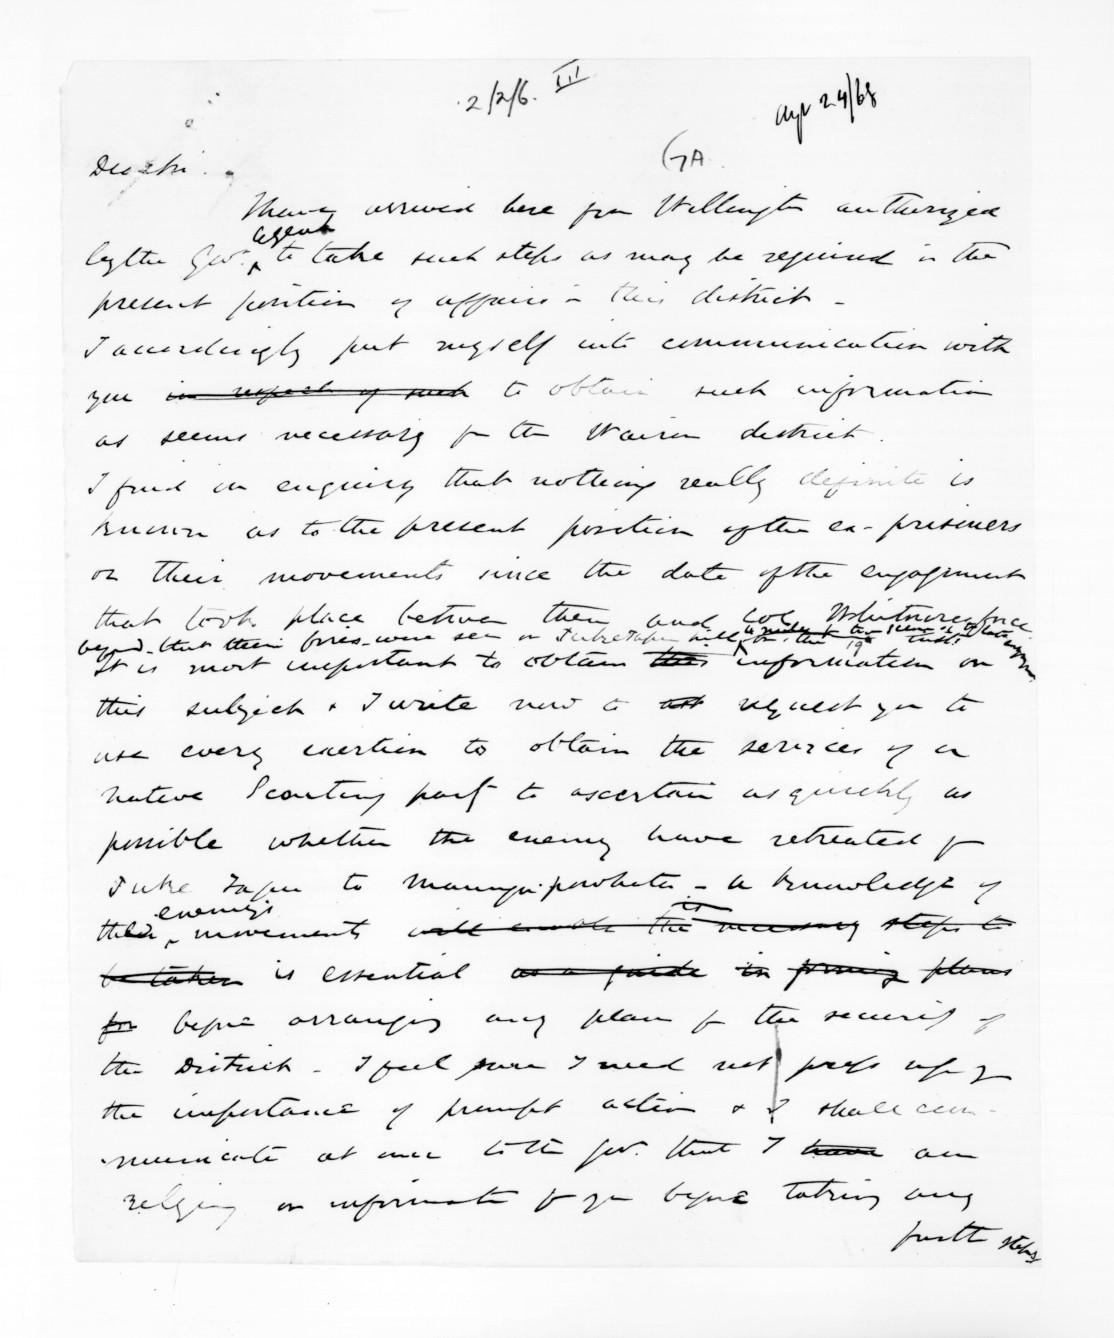 2/2/6. III
Apr 24/68
GA
Dear Sir.
I have arrived here from Wellington authorized
agent
by the Govt. to take such steps as may be required in the
present position of affairs in this district -
I accordingly put myself into communication with
you in respect of such to obtain such information
as seems necessary for the Wairoa district.
I find on enquiry that nothing really definite is
known as to the present position of the ex-prisoners
or their movements since the date of the engagement
that took place between them and Col Whitmores force
beyond that their fires were seen on
It is most important to obtain this information on
this subject & I write now to ask request you to
use every exertion to obtain the services of a
native Scouting party to ascertain as quickly as
possible whether the enemy have retreated from
to - a knowledge of
enemy's
their movements will enable the necessary steps to
be taken is essential as a guide in forming plans
for before arranging any plan for the security of
the District - I feel sure I need not press upon you
the importance of prompt action & I shall com-
municate at once to the Govt. that I have am
relying on information from you before taking any
further steps